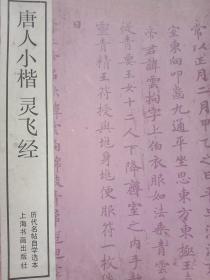 唐人小楷 灵飞经
历代名帖自学选本
上海书画出版社
常以正月二月甲乙之日平旦
室東向叩齒九通平坐思東方東極玉
帝君諱雲拘字上伯衣服如法乘青雲
從青要玉女十二人下降齋室之內手執
靈青精玉符授與兆身兆便服符一枚微
曰